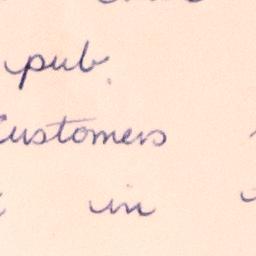 pub.
Customers
in